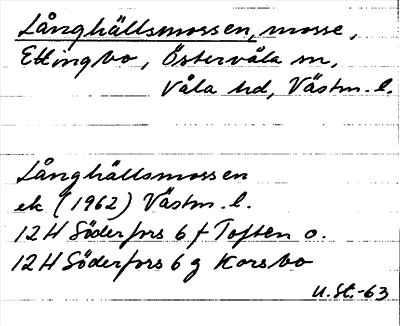 Långhällsmossen, mosse,
Ettingbo, Östervåla sn,
Våla hd, Västm. l.
Långhällsmossen
ek (1962) Västm. l.
12H Söderfors 6 f Toften o.
12H Söderfors 6 g Korsbo
U.St.-63